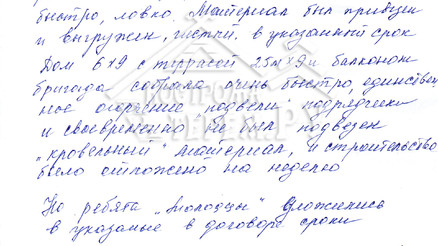 быстро, ловко. Материал был привезен
и выгружен, в указанный срок
Дом 6х9 с террасой 2,5м х 9 и балконом
бригада собрала очень быстро, единствен
ное огорчение подвели подрядчики
и своевременно не был подвезен
"кровельный" материал, и строительство
было отложено на неделю
Но ребята "молодцы" уложились
в указаные в договоре сроки